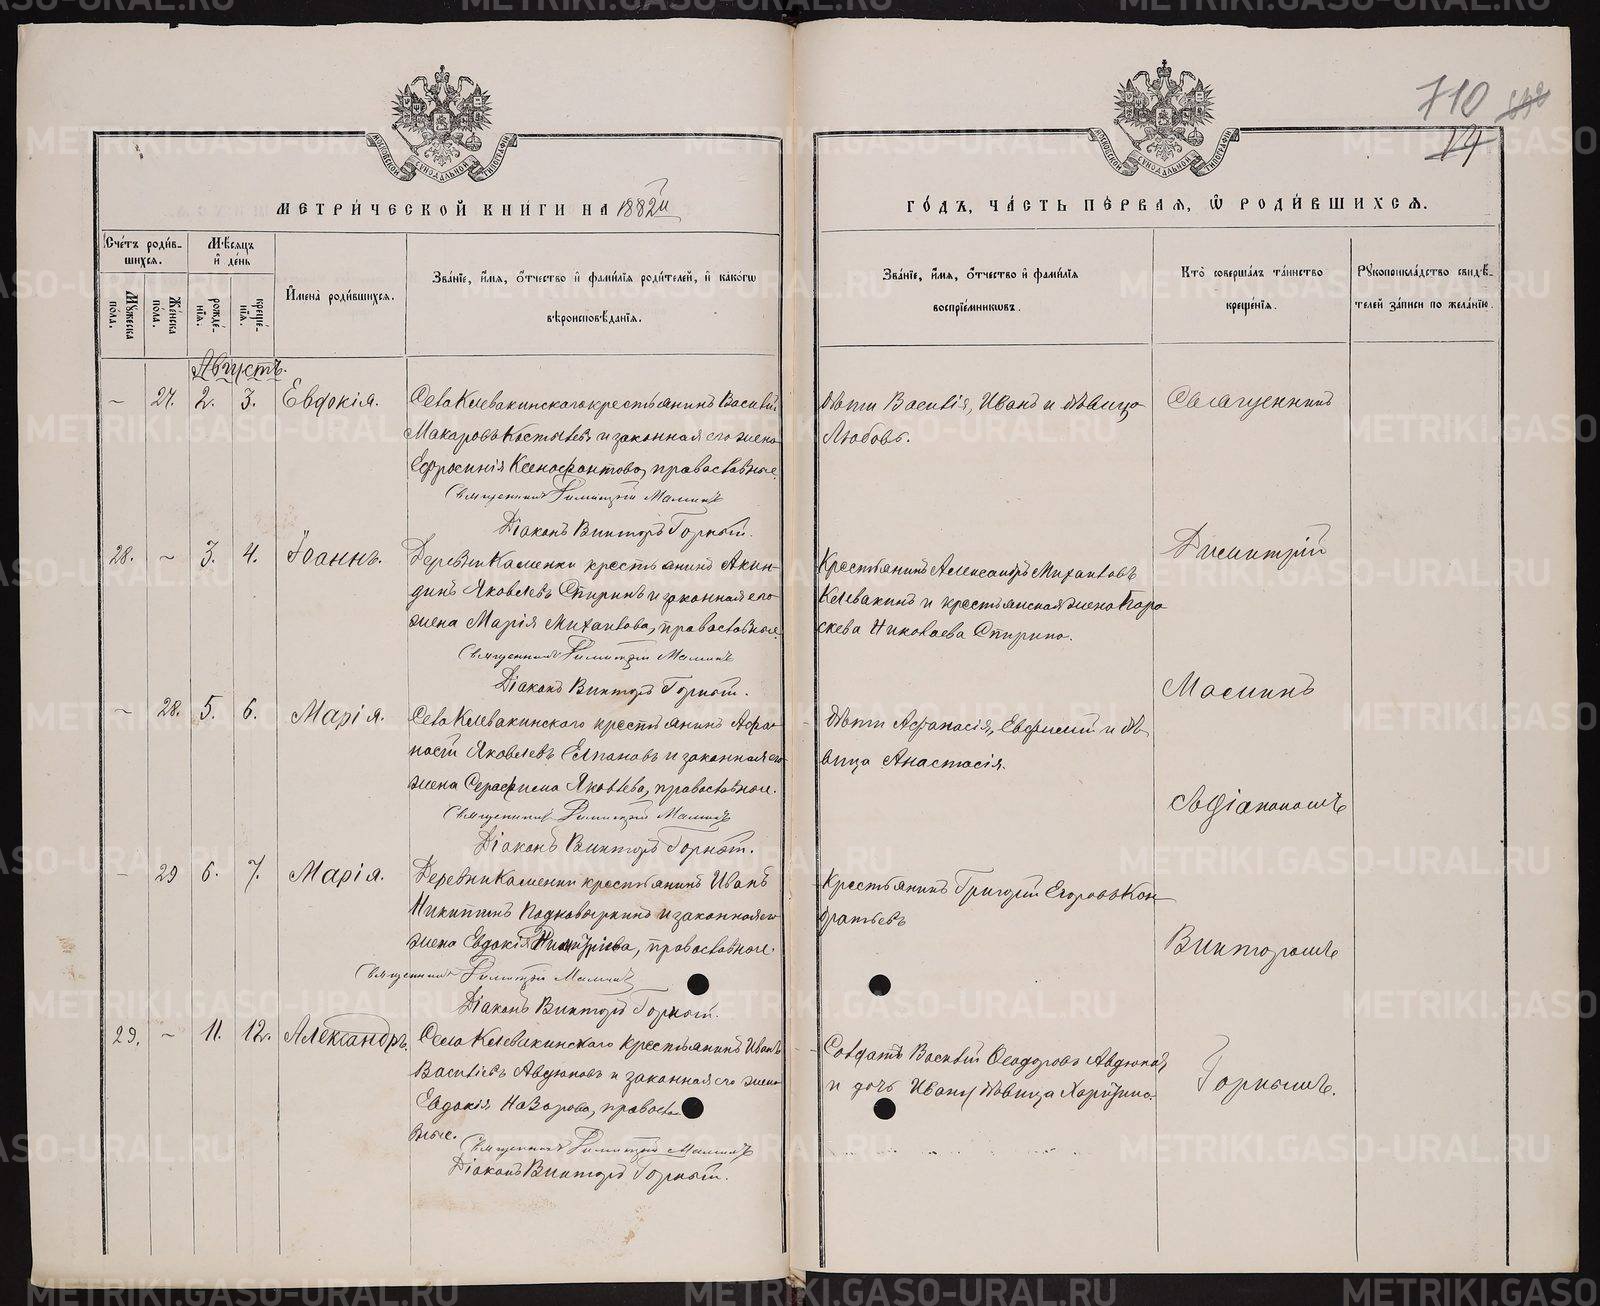 METRIKI.GASO-URAL.RU
710
14
МОСКОВСКОЙ СѴНОДАЛЬНОЙ ТИПОГРАФІИ
МОСКОВСКОЙ СѴНОДАЛЬНОЙ ТИПОГРАФІИ
МЕТРИ́ЧЕСКОЙ КНИ́ГИ НА 1882й
ГО́ДЪ, ЧА́СТЬ ПЕ́РВАѦ, Ѡ҆ РОДИ́ВШИХСѦ.
Сче́тъ роди́в-
шихсѧ.
Мꙋжеска по́ла.
Же́нска по́ла.
Мѣ́сѧцъ
и҆ де́нь
рожде́-
нїѧ.
креще́-
нїѧ.
И҆мена̀ роди́вшихсѧ.
Зва́нїе, и҆́мѧ, ѻ҆́тчество и҆ фами́лїѧ роди́телей, и҆ како́гѡ
вѣроисповѣ́данїѧ.
Зва́нїе, и҆́мѧ, ѻ҆́тчество и҆ фами́лїѧ
воспрїе́мникѡвъ.
Кто̀ соверша́лъ та́инство
креще́нїѧ.
Рꙋкоприкла́дство свидѣ́-
телей за́писи по жела́нїю.
Августъ.
— 27. 2. 3. Евдокія.
Села Клевакинскаго крестьянинъ Василій
Макаровъ Костылевъ и законная его жена
Ефросинія Ксенофонтова, православные.
Священникъ Димитрій Маминъ
Діаконъ Викторъ Горный.
Дѣти Василія, Иванъ и дѣвица
Любовь.
Священникъ
28. — 3. 4. Іоаннъ.
Деревни Каменки крестьянинъ Акин-
динъ Яковлевъ Спиринъ и законная его
жена Марія Михаилова, православные.
Священникъ Димитрій Маминъ
Діаконъ Викторъ Горный.
Крестьянинъ Александръ Михаиловъ
Клевакинъ и крестьянская жена Пара-
скева Николаева Спирина.
Димитрій
— 28. 5. 6. Марія.
Села Клевакинскаго крестьянинъ Афа-
насій Яковлевъ Еспановъ и законная его
жена Серафима Яковлева, православные.
Священникъ Димитрій Маминъ
Діаконъ Викторъ Горный.
Дѣти Афанасія, Евфимій и дѣ-
вица Анастасія.
Маминъ
съ Діакономъ
— 29 6. 7. Марія.
Деревни Каменки крестьянинъ Иванъ
Никитинъ Подковыркинъ и законная его
жена Евдокія Димитріева, православные.
Священникъ Димитрій Маминъ
Діаконъ Викторъ Горный.
Крестьянинъ Григорій Егоровъ Кон-
дратьевъ
Викторомъ
29. — 11. 12. Александръ.
Села Клевакинскаго крестьянинъ Иванъ
Васильевъ Авдюковъ и законная его жена
Евдокія Назарова, правосла-
вные.
Священникъ Димитрій Маминъ
Діаконъ Викторъ Горный.
Солдатъ Василій Ѳеодоровъ Авдюковъ
и дочь Ивана дѣвица Харитина.
Горнымъ.